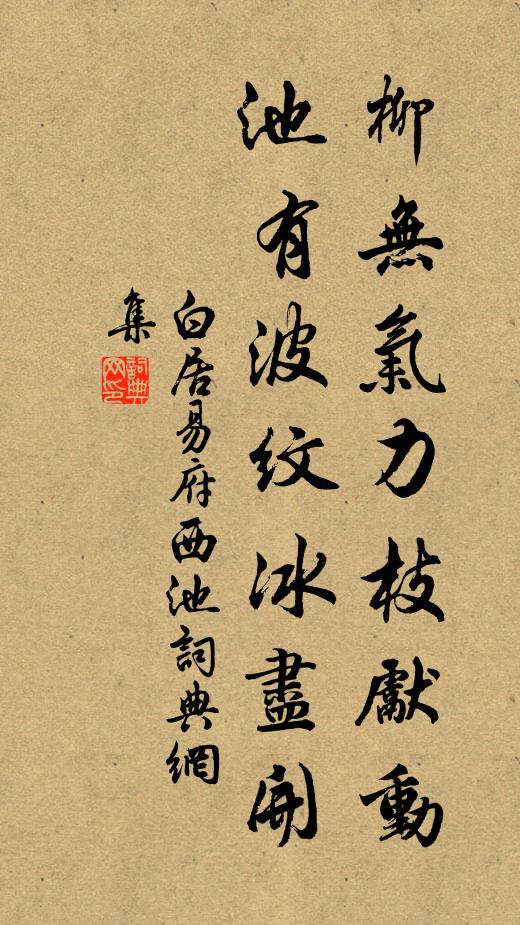 柳無氣力枝獻動
池有波紋冰盡開
白居易府西池詞典網
集
詞典
网印